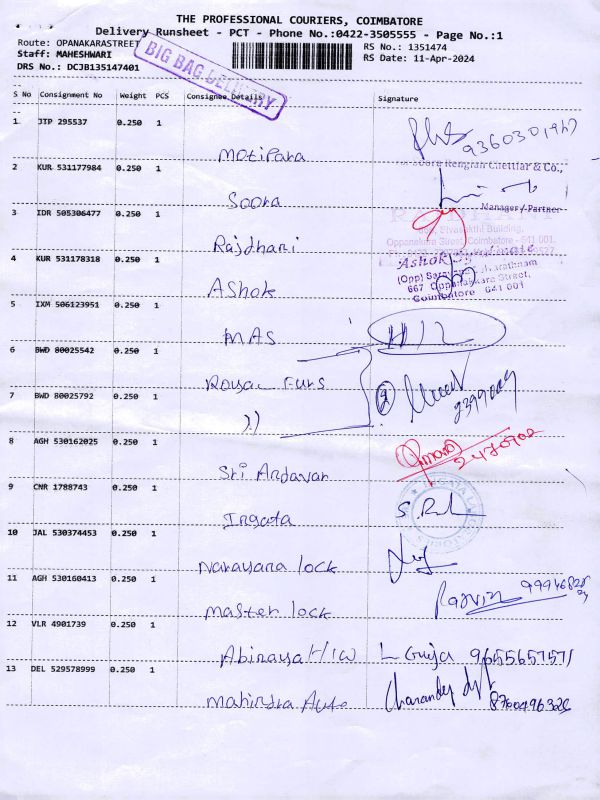 THE PROFESSIONAL COURIERS, COIMBATORE
Delivery Runsheet - PCT - Phone No.:0422-3505555 - Page No.:1
Route: OPANAKARASTREET
RS No.: 1351474
Staff: MAHESHWARI
RS Date: 11-Apr-2024
DRS No.: DCJB135147401
BIG BAG DELIVERY
S No Consignment No Weight PCS Consignee Details Signature
1 JTP 295537 0.250 1
Motipara
2 KUR 531177984 0.250 1
Rengian Chettiar & Co.,
Soora
Manager/Partner
3 IDR 505306477 0.250 1
Building,
Oppanakara Street, Coimbatore - 641 001.
Rajdhari
4 KUR 531178318 0.250 1
Ashok Syndicate
(Opp)
667 Oppanakkare Street,
Coimbatore 641 001
Ashok
5 IXM 506123951 0.250 1
MAS
6 BWD 80025542 0.250 1
Royal Furs
7 BWD 80025792 0.250 1
2399009
8 AGH 530162025 0.250 1
2470902
Sri Andavar
9 CNR 1788743 0.250 1
Ingata
10 JAL 530374453 0.250 1
Narayana lock
11 AGH 530160413 0.250 1
master lock
12 VLR 4901739 0.250 1
Abinaya H/W L Guija 9655657571
13 DEL 529578999 0.250 1
Mahindra Auto